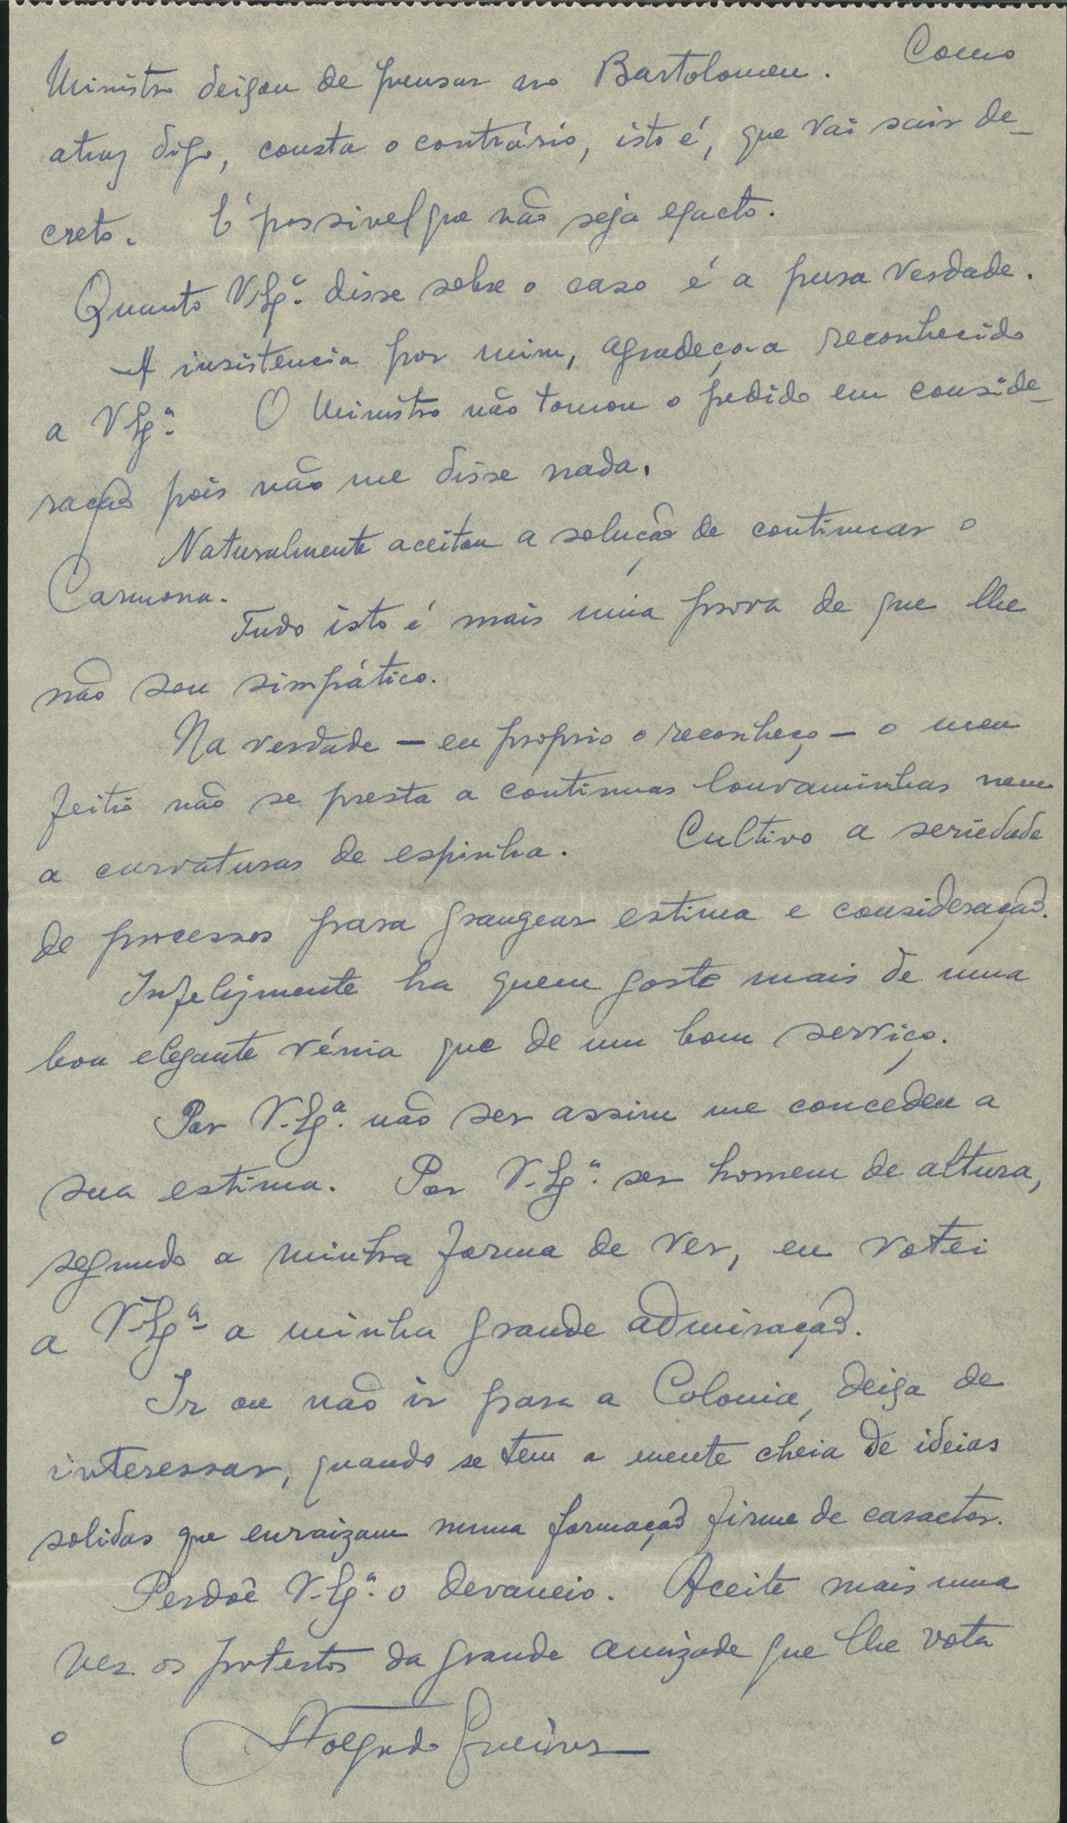 Ministro deixou de pensar no Bartolomeu. Como
atraz digo, consta o contrário, isto é, que vai sair de-
creto. É possivel que não seja exacto.
Quanto V. Exª. disse sobre o caso é a pura verdade.
A insistencia por mim, agradeço-a reconhecido
a V. Exª. O Ministro não tomou o pedido em conside-
ração pois não me disse nada.
Naturalmente aceitou a solução de continuar o
Carmona.
Tudo isto é mais uma prova de que lhe
não sou simpático.
Na verdade — eu proprio o reconheço — o meu
feitio não se presta a continuas louvaminhas nem
a curvaturas de espinha. Cultivo a seriedade
de processos para grangear estima e consideração.
Infelizmente ha quem goste mais de uma
boa elegante vénia que de um bom serviço.
Por V. Exª. não ser assim me concedeu a
sua estima. Por V. Exª. ser homem de altura,
segundo a minha forma de ver, eu votei
a V. Exª a minha grande admiração.
Ir ou não ir para a Colonia, deixa de
interessar, quando se tem a mente cheia de ideias
solidas que enraizam numa formação firme de caracter.
Perdoê V. Exª. o devaneio. Aceite mais uma
vez os protestos da grande amizade que lhe vota
o